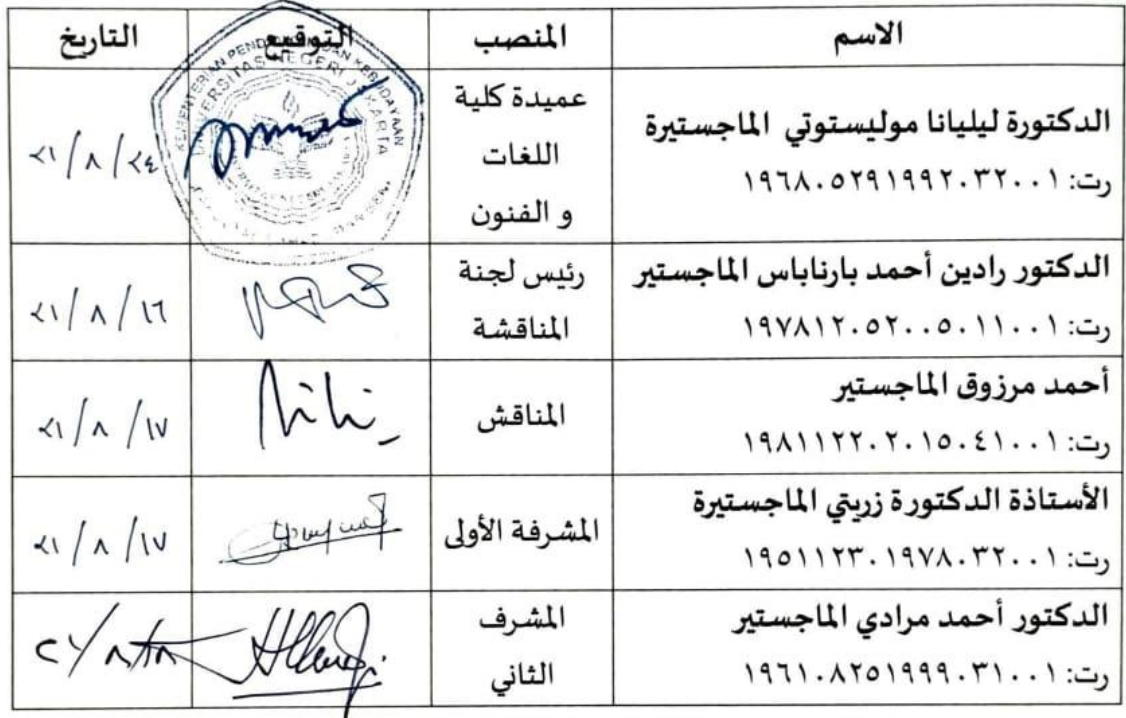 الاسم المنصب التوقيع التاريخ
الدكتورة ليليانا موليستوتي الماجستيرة
رت: ١٩٦٨٠٥٢٩١٩٩٢٠٣٢٠٠١
عميدة كلية
اللغات
و الفنون
٢١/٨/٢٤
الدكتور رادين أحمد بارناباس الماجستير
رت: ١٩٧٨١٢٠٥٢٠٠٥٠١١٠٠١
رئيس لجنة
المناقشة
٢١/٨/١٦
أحمد مرزوق الماجستير
رت: ١٩٨١١٢٢٠٢٠١٥٠٤١٠٠١
المناقش
٢١/٨/١٧
الأستاذة الدكتورة زريتي الماجستيرة
رت: ١٩٥١١٢٣٠١٩٧٨٠٣٢٠٠١
المشرفة الأولى
٢١/٨/١٧
الدكتور أحمد مرادي الماجستير
رت: ١٩٦١٠٨٢٥١٩٩٩٠٣١٠٠١
المشرف
الثاني